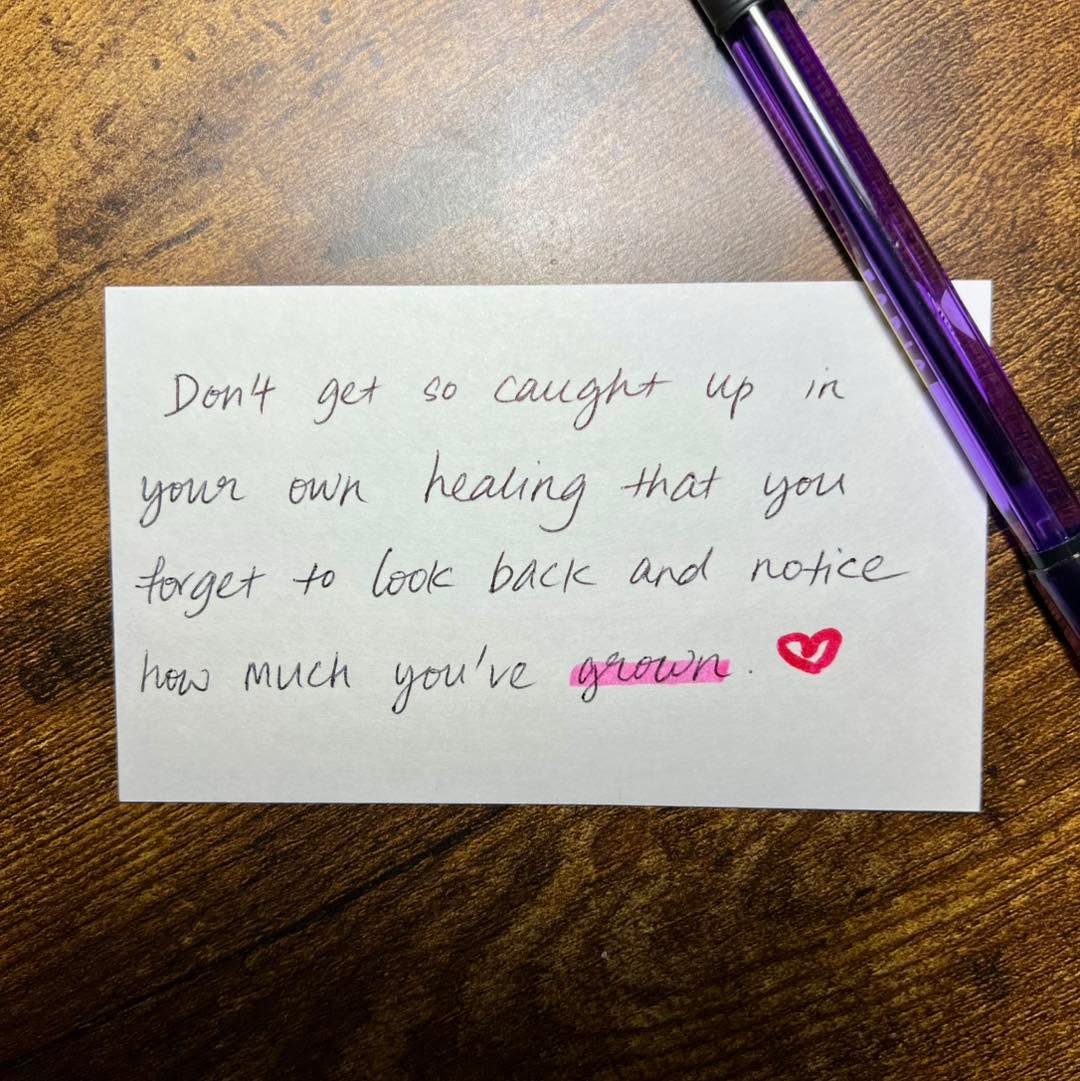 Don't get so caught up in
your own healing that you
forget to look back and notice
how much you've grown.